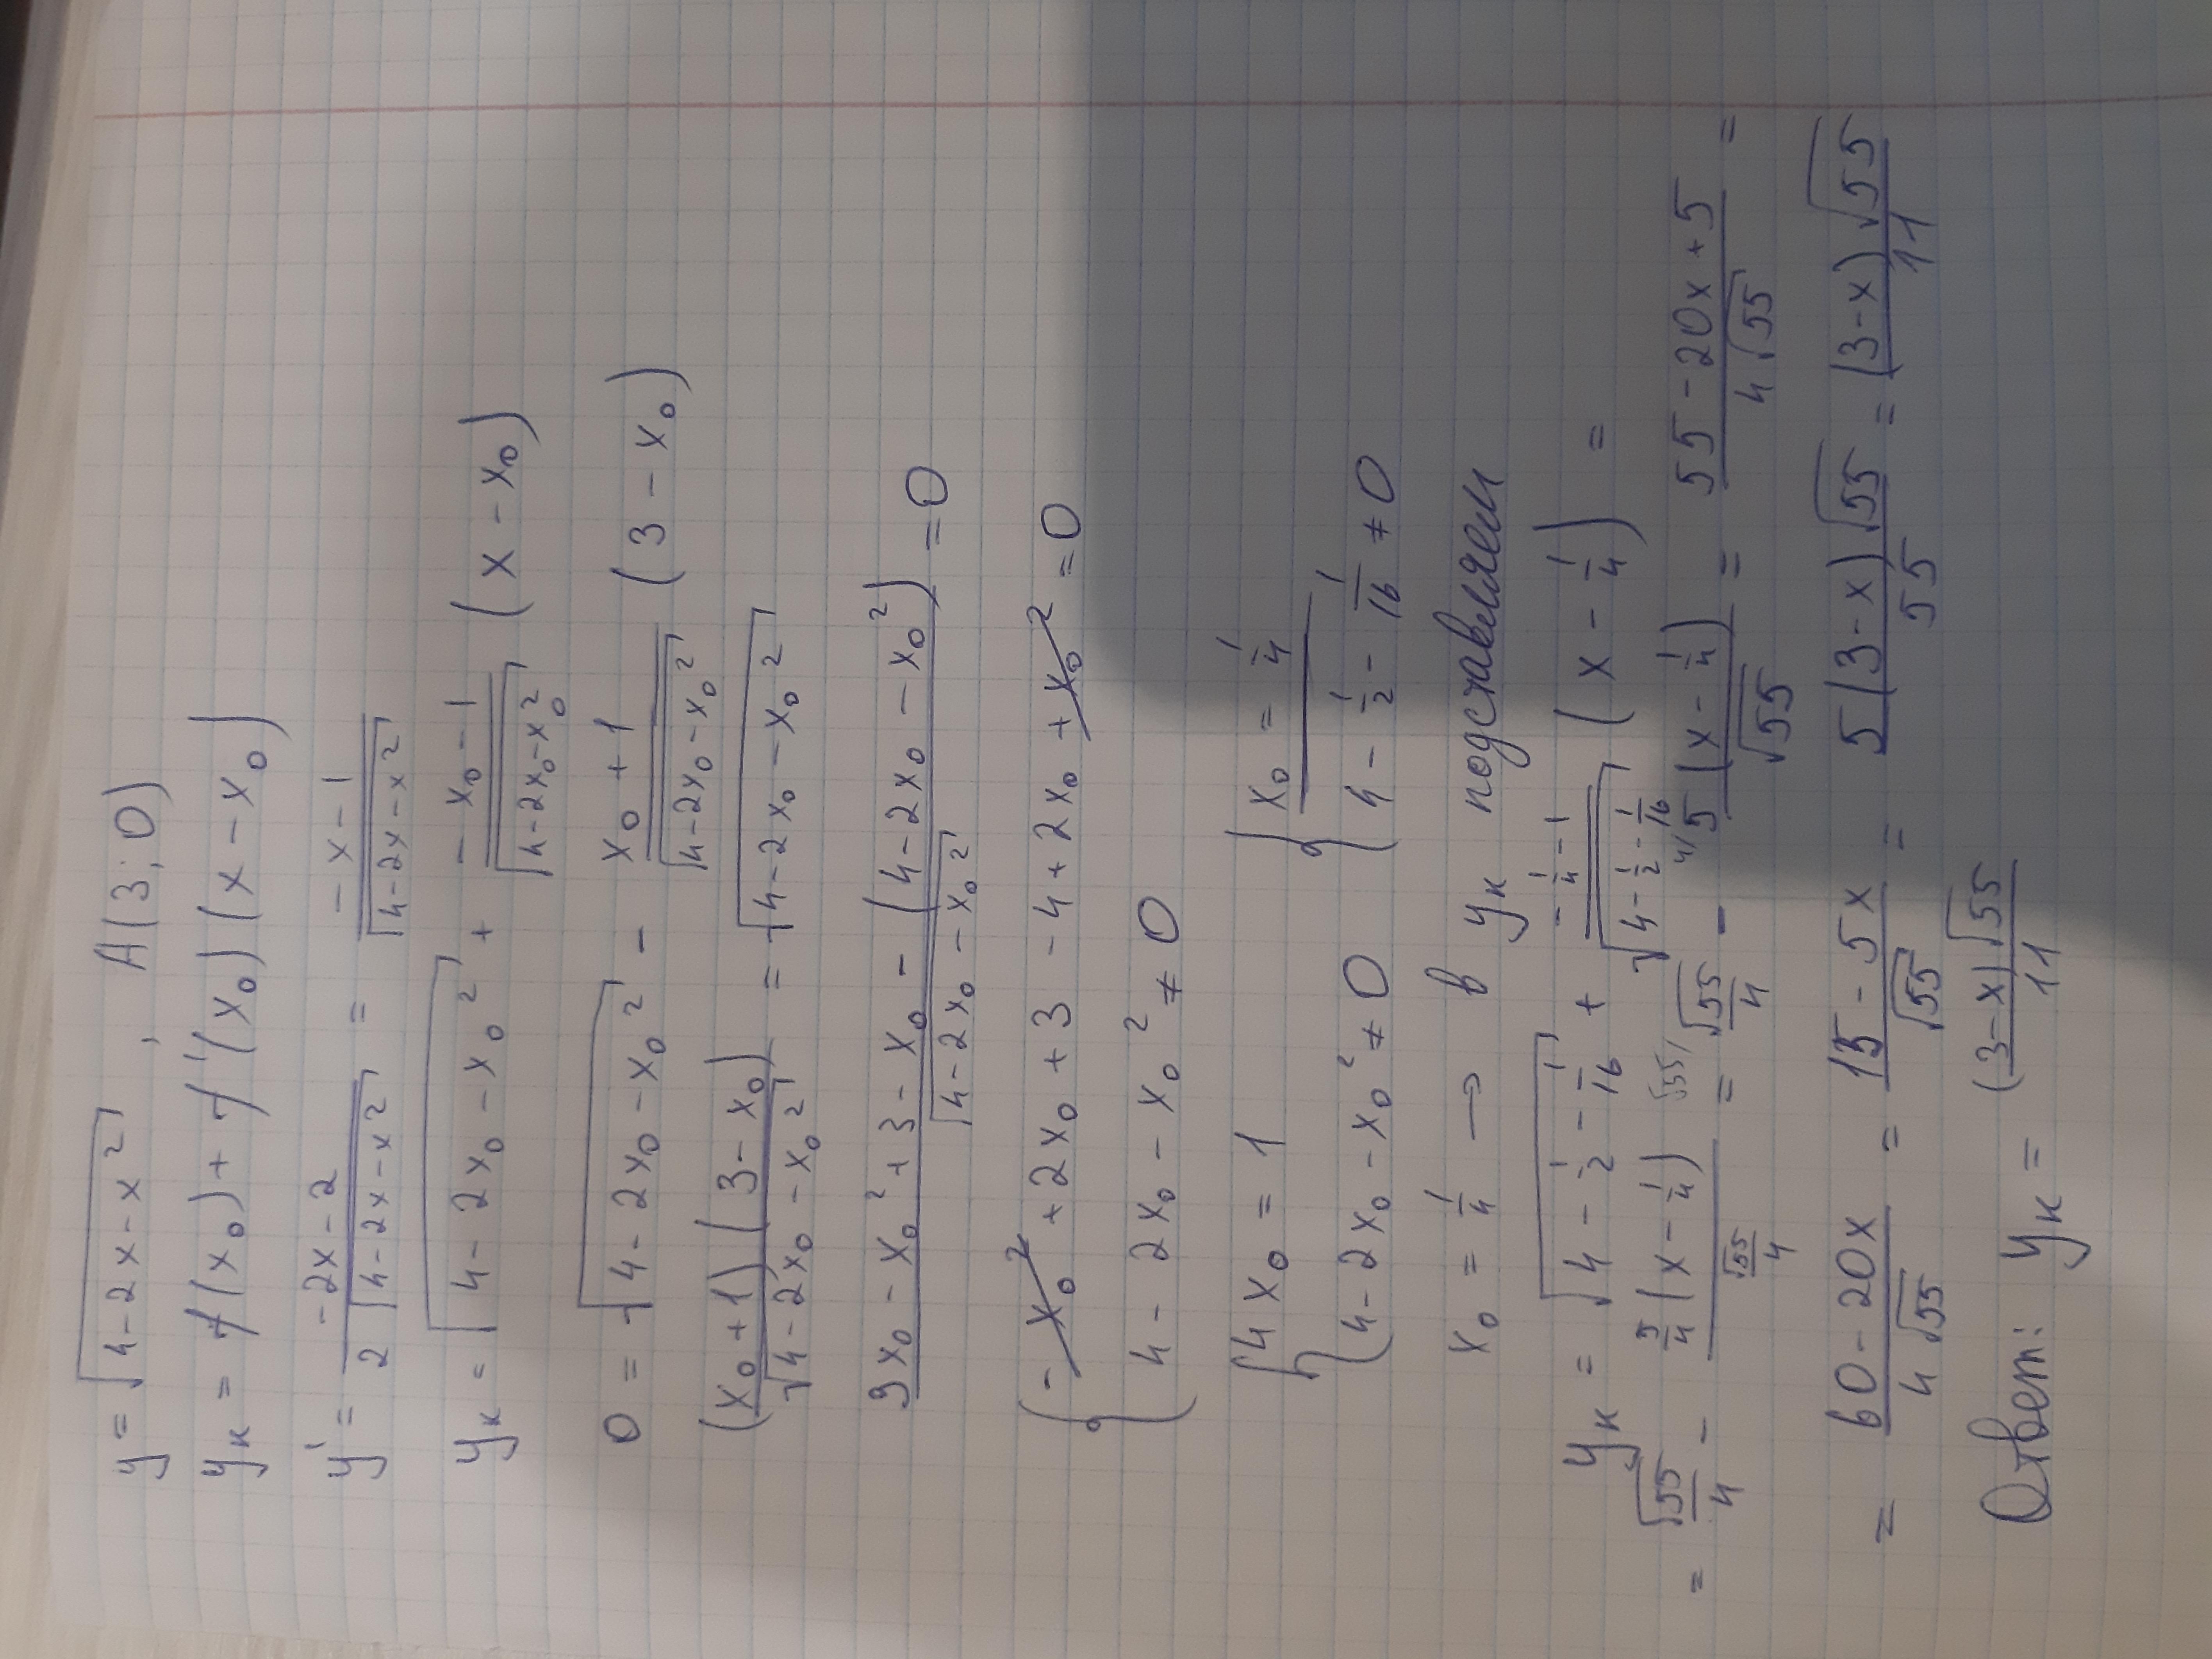 y = √(4-2x-x²) , A(3;0)
yк = f(x₀) + f'(x₀)(x-x₀)
y' = (-2x-2)/(2√(4-2x-x²)) = (-x-1)/√(4-2x-x²)
yк = √(4-2x₀-x₀²) + (-x₀-1)/√(4-2x₀-x₀²) (x-x₀)
0 = √(4-2x₀-x₀²) - (x₀+1)/√(4-2x₀-x₀²) (3-x₀)
(x₀+1)(3-x₀)/√(4-2x₀-x₀²) = √(4-2x₀-x₀²)
(3x₀-x₀²+3-x₀-(4-2x₀-x₀²))/√(4-2x₀-x₀²) = 0
{ -x₀²+2x₀+3-4+2x₀+x₀² = 0
4-2x₀-x₀² ≠ 0
{ 4x₀ = 1 { x₀ = 1/4
4-2x₀-x₀² ≠ 0 4 - 1/2 - 1/16 ≠ 0
x₀ = 1/4 → в yк подставляем
yк = √(4 - 1/2 - 1/16) + (-1/4 - 1)/√(4 - 1/2 - 1/16) (x - 1/4) =
= √55/4 - (5/4 (x - 1/4))/(√55/4) = √55/ √55/4 - 4/ 5(x - 1/4)/√55 = (55-20x+5)/(4√55) =
= (60-20x)/(4√55) = (15-5x)/√55 = 5(3-x)√55/55 = (3-x)√55/11
Ответ: yк = (3-x)√55/11